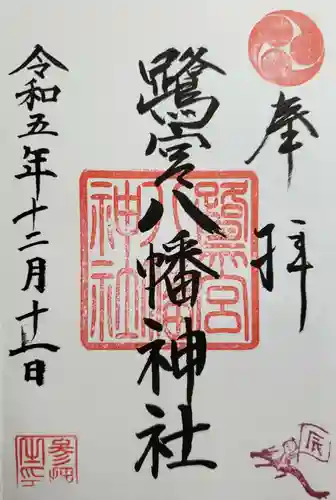 奉拝
鷺宮八幡神社
令和五年十二月十一日
鷺宮
八幡
神社
辰